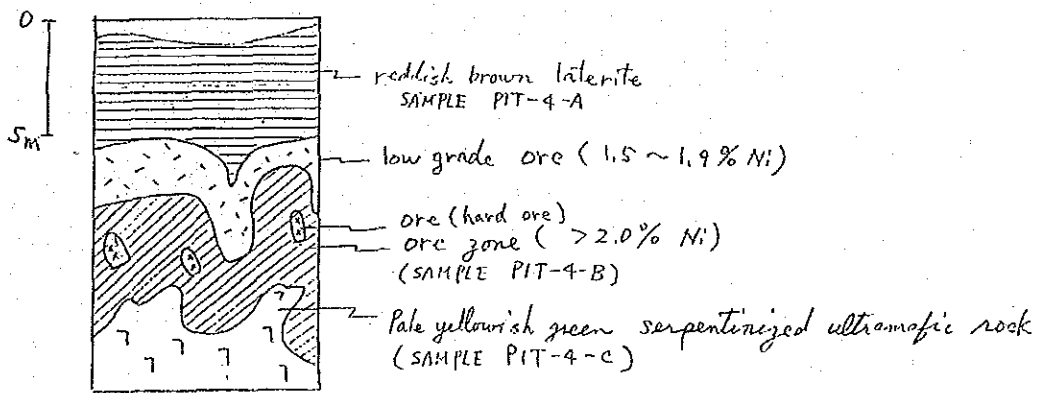 0
5m
reddish brown laterite
SAMPLE PIT-4-A
low grade ore (1.5 ~ 1.9% Ni)
ore (hard ore)
ore zone ( >2.0% Ni)
(SAMPLE PIT-4-B)
Pale yellowish green serpentinized ultramafic rock
(SAMPLE PIT-4-C)